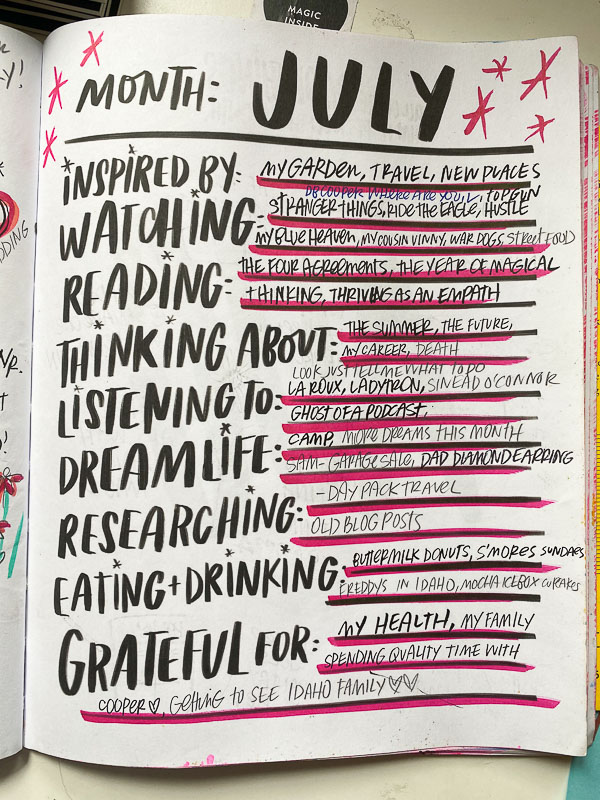 MAGIC
INSIDE
MONTH: JULY
INSPIRED BY: MY GARDEN, TRAVEL, NEW PLACES
DB COOPER WHERE ARE YOU, TOP GUN
WATCHING: STRANGER THINGS, RIDE THE EAGLE, HUSTLE
MY BLUE HEAVEN, MY COUSIN VINNY, WAR DOGS, STREET FOOD
READING: THE FOUR AGREEMENTS, THE YEAR OF MAGICAL
THINKING, THRIVING AS AN EMPATH
THINKING ABOUT: THE SUMMER, THE FUTURE,
MY CAREER, DEATH
LOOK JUST TELL ME WHAT TO DO
LISTENING TO: LA ROUX, LADYTRON, SINEAD O'CONNOR
GHOST OF A PODCAST,
DREAM LIFE: CAMP, MORE DREAMS THIS MONTH
SAM- GARAGE SALE, DAD DIAMOND EARRING
RESEARCHING: -DAY PACK TRAVEL
OLD BLOG POSTS
EATING+DRINKING: BUTTERMILK DONUTS, S'MORES SUNDAES
FREDDYS IN IDAHO, MOCHA ICEBOX CUPCAKES
GRATEFUL FOR: MY HEALTH, MY FAMILY
SPENDING QUALITY TIME WITH
COOPER♡, GETTING TO SEE IDAHO FAMILY♡♡